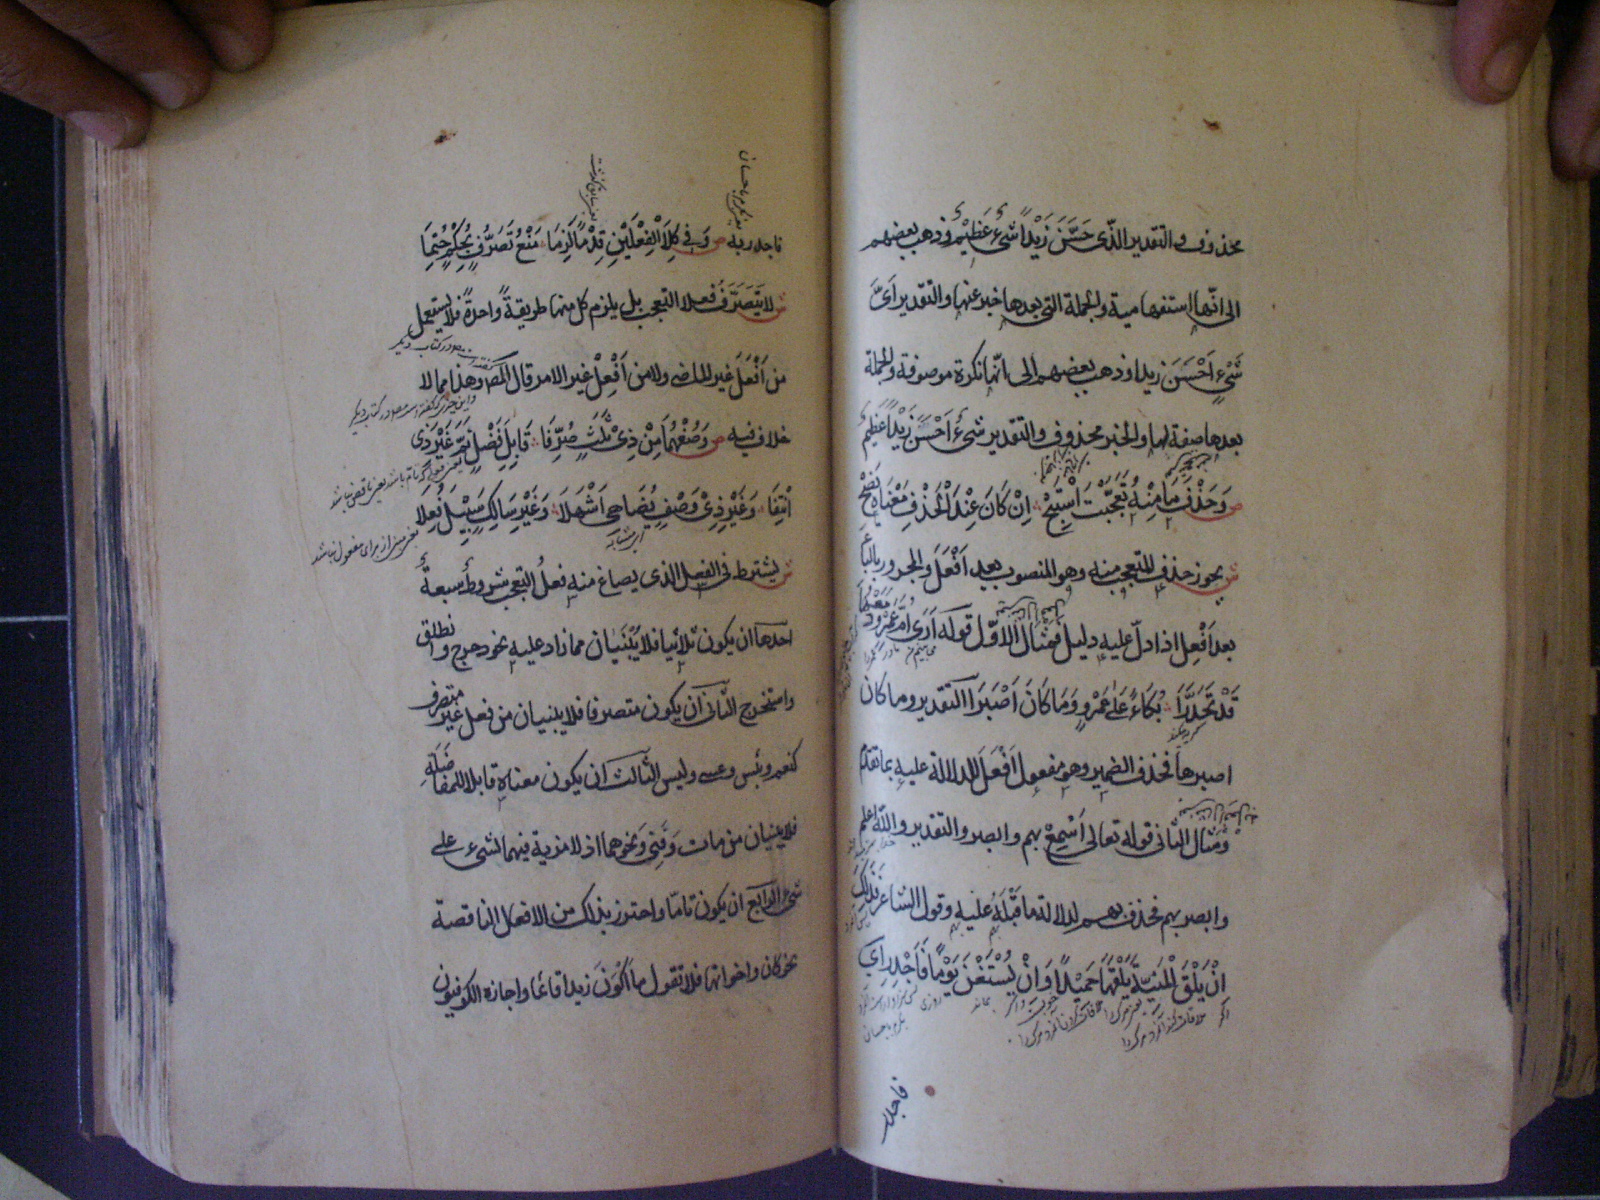 محذوف والتقدير الذى حَسَّنَ زَيْدًا شىءٌ عَظِيْمٌ وذهب بعضهم
الى انّها استفهامية والجملة التى بعدها خبر عنها والتقدير اىُّ
شَىْءٍ اَحْسَنَ زيدا وذهب بعضهم الى انّها نكرة موصوفة والجملة
بعدها صفة لها والخبر محذوف والتقدير شىءٌ اَحْسَنَ زَيْدًا عَظِيْمٌ
ص وَحَذْفَ مَا مِنْهُ تَعَجَّبْتَ اسْتَبِحْ اِنْ كَانَ عِنْدَ الْحَذْفِ مَعْنَاهُ يَضِحْ
ش يجوز حذف المتعجب منه وهو المنصوب بعد اَفْعَلَ والمجرور بالباء
بعد اَفْعِل اذا دلّ عليه دليل فمثال الاوّل قوله اَرَى اُمَّ عَمْرٍو دَمْعُهَا
قَدْ تَحَدَّرَا بُكَاءً عَلَى عَمْرٍو وَمَا كَانَ اَصْبَرَا التقدير وما كان
اصبرها فحذف الضمير وهو مفعول اَفْعَلَ للدلالة عليه بما تقدم
ومثال الثانى قوله تعالى اَسْمِعْ بهم وابصر والتقدير والله اعلم
وابصر بهم فحذف بهم لدلالة ما قَبْلَهُ عليه وقول الشاعر فَذٰلِكَ
اِنْ يَلْقَ الْمَنِيَّةَ يَلْقَهَا حَمِيْدًا وَاِنْ يَسْتَغْنِ يَوْمًا فَاَجْدِرِ اى
فاجدر
فاجدر به ص وَفِى كِلَا الْفِعْلَيْنِ قِدْمًا لَزِمَا مَنْعُ تَصَرُّفٍ بِحُكْمٍ حُتِمَا
ش لا يَتَصَرَّفُ فعلا التعجب بل يلزم كل منهما طريقةً واحدةً فلا يستعمل
من اَفْعَلَ غير الماضى ولا من اَفْعِلْ غير الامر قال المصـ وهذا مما لا
خلاف فيه ص وَصُغْهُمَا مِنْ ذِىْ ثَلٰثٍ صُرِّفَا قَابِلِ فَضْلٍ تَمَّ غَيْرِ ذِى
انْتِفَا وَغَيْرِ ذِىْ وَصْفٍ يُضَاهِى اَشْهَلَا وَغَيْرِ سَالِكٍ سَبِيْلَ فُعِلَا
ش يشترط فى الفعل الذى يصاغ منه فعلُ التعجب شروط سبعةٌ
احدها ان يكون ثلاثيا فلا يُبْنَيَان مما زاد عليه نحو دحرج وانطلق
واستخرج الثانى ان يكون متصرفا فلا يبنيان من فعل غير متصرف
كنعم وبئس وعسى وليس الثالث ان يكون معناه قابلا للمفاضلة
فلا يبنيان من مات وَفَنِىَ ونحوهما اذ لا مزية فيهما لشىء على
شىء الرابع ان يكون تامّا واحترز بذلك من الافعال الناقصة
نحو كان واخواتها فلا تقول ما اَكْوَنَ زيدا قائما واجازه الكوفيون